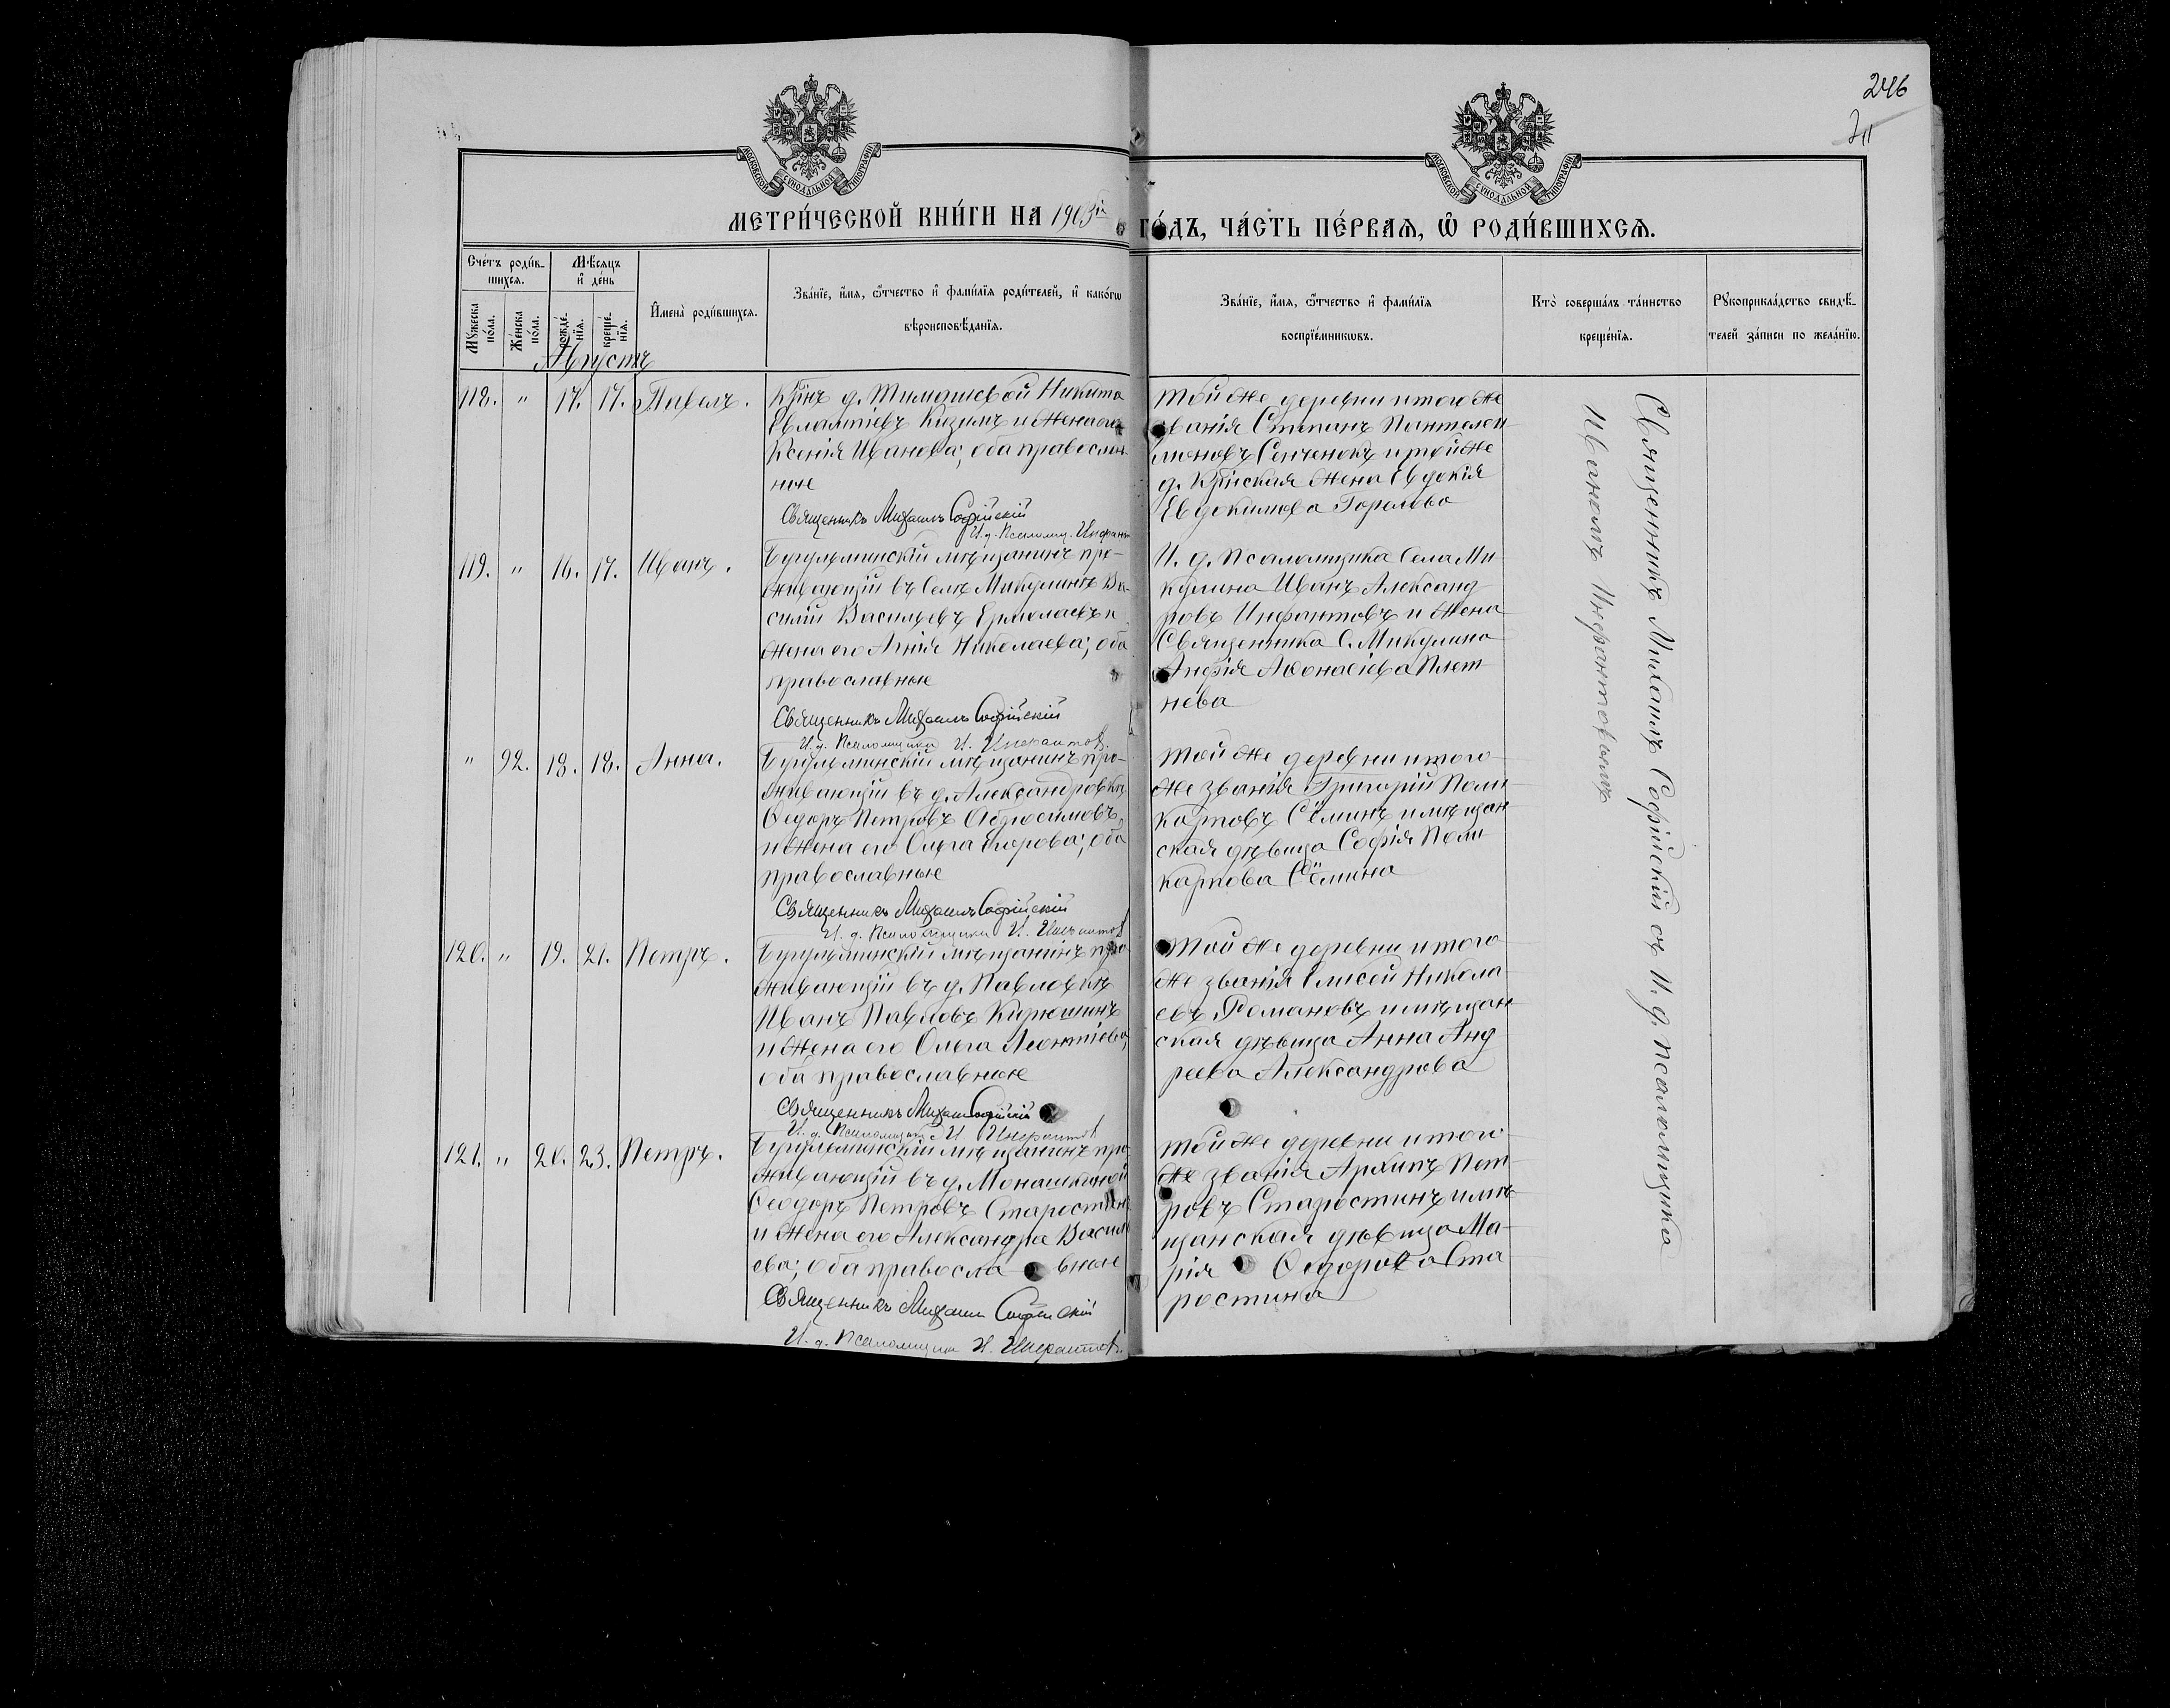 246
МОСКОВСКОЙ СУНОДАЛЬНОЙ ТИПОГРАФІИ
МОСКОВСКОЙ СУНОДАЛЬНОЙ ТИПОГРАФІИ
МЕТРИ́ЧЕСКОЙ КНИ́ГИ НА 1903й ГО́ДЪ, ЧА́СТЬ ПЕ́РВАѦ, Ѡ҆ РОДИ́ВШИХСѦ.
Сче́тъ роди́в-
шихсѧ.
Мѣ́сѧцъ
и҆ де́нь
Мꙋ́жеска по́ла.
Же́нска по́ла.
рожде́-нїѧ.
креще́-нїѧ.
И҆мена̀ роди́вшихсѧ.
Зва́нїе, и҆́мѧ, ѻ҆́тчество и҆ фамилїѧ роди́телей, и҆ како́гѡ
вѣроисповѣ́данїѧ.
Зва́нїе, и҆́мѧ, ѻ҆́тчество и҆ фамилїѧ
воспрїе́мникѡвъ.
Кто̀ соверша́лъ та́инство
креще́нїѧ.
Рꙋкоприкла́дство свидѣ́-
телей за́писи по жела́нїю.
Августъ
118. " 17. 17. Павелъ.
Кр̃нъ д. Тимашевой Никита
Евлампіевъ Кузимъ и жена его
Ксенія Иванова; оба православ
ные
Священникъ Михаилъ Софійскій
И. д. Псаломщ. Инфант
Той же деревни и того же
званія Степанъ Пантелеи
моновъ Сенченокъ и той же
д. Кр̃нская жена Евдокія
Евдокимова Горелова
119. " 16. 17. Иванъ.
Бугульминскій мѣщанинъ про-
живающій въ селѣ Микулинѣ Ва-
силій Васильевъ Ермолаевъ и
жена его Агнія Николаева; оба
православные
Священникъ Михаилъ Софійскій
И. д. Псаломщика И. Инфантов.
И. д. Псаломщика Села Ми-
кулина Иванъ Александ
ровъ Инфантовъ и жена
Священника С. Микулина
Анфія Аѳонасіева Плет
нева
" 92. 18. 18. Анна.
Бугульминскій мѣщанинъ про-
живающій въ д. Александровкѣ
Ѳедоръ Петровъ Абросимовъ
и жена его Ольга Егорова; оба
православные
Священникъ Михаилъ Софійскій
И. д. Псаломщика И. Инфантов
Той же деревни и того
же званія Григорій Поли
карповъ Сёминъ и мѣщан
ская дѣвица Софія Поли
карпова Сёмина
120. " 19. 21. Петръ.
Бугульминскій мѣщанинъ про
живающій въ д. Павловкѣ
Иванъ Павловъ Кирюшинъ
и жена его Ольга Леонтіева,
оба православные
Священникъ Михаилъ Софійскій
И. д. Псаломщика И Инфантов
Той же деревни и того
же званія Елисей Никола
евъ Романовъ и мѣщан
ская дѣвица Анна Анд
реева Александрова
121. " 20. 23. Петръ.
Бугульминскій мѣщанинъ про
живающій въ д. Монашкиной
Ѳеодоръ Петровъ Старостинъ
и жена его Александра Васил
ева; оба правосла вные
Священникъ Михаилъ Софійскій
И. д. Псаломщика И. Инфантов.
Той же деревни и того
же званія Архипъ Пет
ровъ Старостинъ и мѣ
щанская дѣвица Ма-
рія Ѳедорова Ста
ростина
Священникъ Михаилъ Софійскій съ И. д. псаломщика
Иваномъ Инфантовымъ